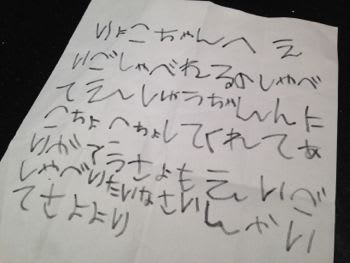 りょこちゃんへ え
いごしゃべれるのしゃべ
てえんしゅうちゃんんに
こちょへちょしてくれてあ
りがてうさよも えいご
しゃべりたいなさいんがい
てさよより